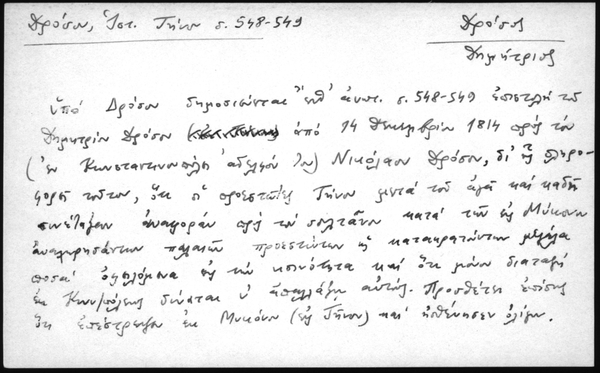 Δρόσου, Ἱστ. Τήνου σ. 548-549
Δρόσος
Δημήτριος
ὑπό Δρόσου δημοσιεύεται ἔνθ' ἀνωτ. σ. 548-549 ἐπιστολή τοῦ
Δημητρίου Δρόσου ἀπό 14 Δεκεμβρίου 1814 πρός τόν
(ἐν Κωνσταντινουπόλει ἀδελφόν του) Νικόλαον Δρόσον, δι' ἧς πληρο-
φορεῖ τοῦτον, ὅτι οἱ προεστῶτες Τήνου μετά τοῦ ἀγᾶ καί καδῆ
συνέταξαν ἀναφοράν πρός τόν σουλτᾶνον κατά τῶν εἰς Μύκονον
ἀναχωρησάντων παλαιῶν προεστώτων ὡς κατακρατούντων μεγάλα
ποσά ὀφειλόμενα εἰς τήν κοινότητα καί ὅτι μόνον διαταγή
ἐκ Κων/πόλεως δύναται ν' ἀπαλλάξῃ αὐτούς. Προσθέτει ἐπίσης
ὅτι ἐπέστρεψεν ἐκ Μυκόνου (εἰς Τῆνον) καί ἠσθένησεν ὀλίγον.